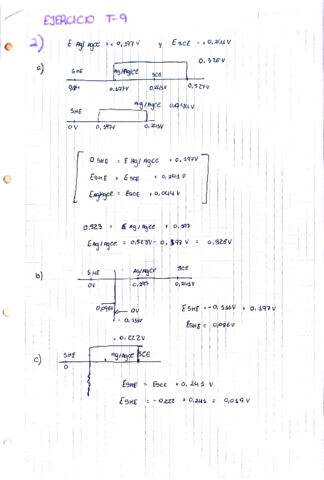 EJERCICIO T-9
2) E Ag/AgCl = 0,197V y E SCE = 0,241V
0.326V
a)
SHE Ag/AgCl SCE
0,197V 0,241V 0,523V
SHE Ag/AgCl
0V 0,197V 0,241V
0 SHE = E Ag/AgCl + 0,197V
ESHE = ESCE + 0,241V
EAg/AgCl = ESCE + 0,044V
0,523 = E Ag/AgCl + 0,197
E Ag/AgCl = 0,523V - 0,197V = 0,326V
b)
SHE Ag/AgCl SCE
0V 0,197 0,241V
0V
ESHE = -0,111V + 0,197V
ESHE = 0,086V
-0.222V
c)
SHE Ag/AgCl SCE
0
ESHE = ESCE + 0,241 V
ESHE = -0,222 + 0,241 = 0,019V